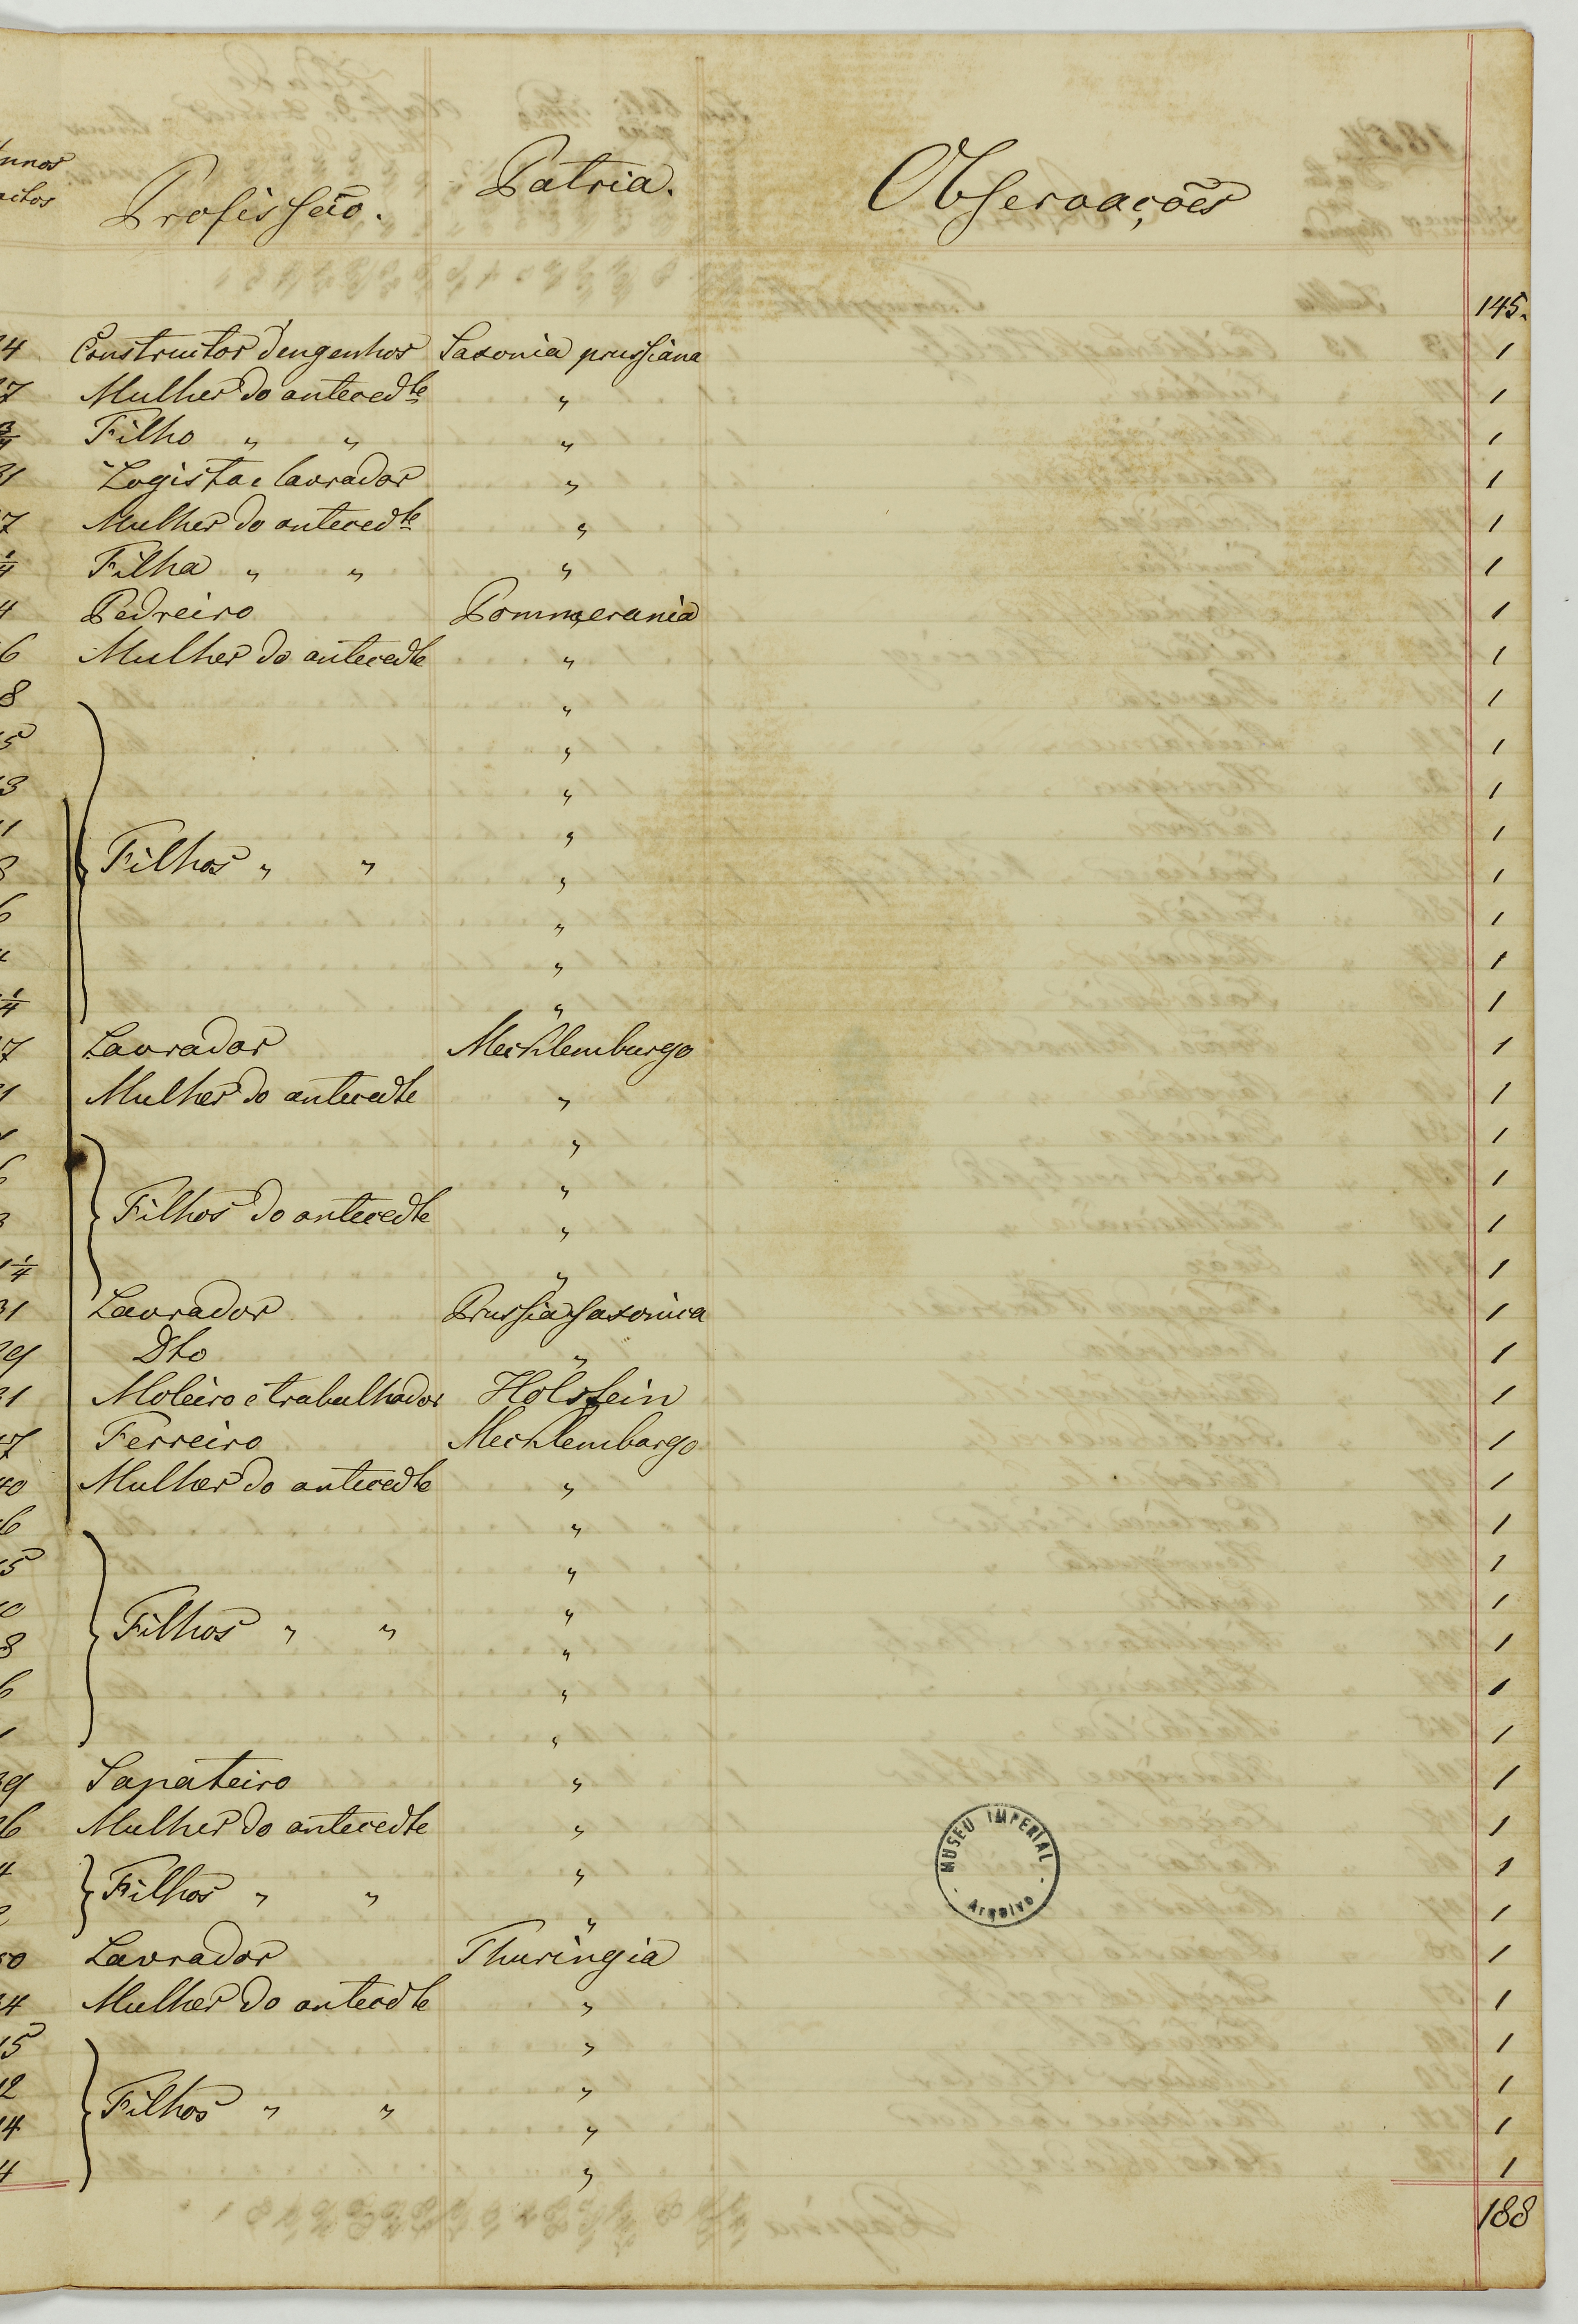 nnos
Profissão. Patria. Observações
145.
4 Constructor d'engenhos Saxonia prussiana 1
7 Mulher do antecedte " 1
3/4 Filho " " " 1
31 Logista e lavrador " 1
7 Mulher do antecedte " 1
1/4 Filha " " " 1
4 Pedreiro Pommerania 1
6 Mulher do antecedte " 1
8 " 1
5 " 1
3 " 1
1 " 1
8 Filhos " " " 1
6 " 1
" 1
1/4 " 1
7 Lavrador Mechlemburgo 1
1 Mulher do antecedte " 1
" 1
6 " 1
3 Filhos do antecedte " 1
1 1/4 " 1
31 Lavrador Prussia Saxonica 1
29 Dto " 1
31 Moleiro e trabalhador Holstein 1
47 Ferreiro Mechlemburgo 1
40 Mulher do antecedte " 1
6 " 1
15 " 1
10 " 1
8 Filhos " " " 1
6 " 1
1 " 1
39 Sapateiro " 1
36 Mulher do antecedte " 1
4 Filhos " " " 1
2 " 1
50 Lavrador Thuringia 1
34 Mulher do antecedte " 1
15 " 1
12 " 1
14 Filhos " " " 1
4 " 1
188
MUSEU IMPERIAL
Arquivo